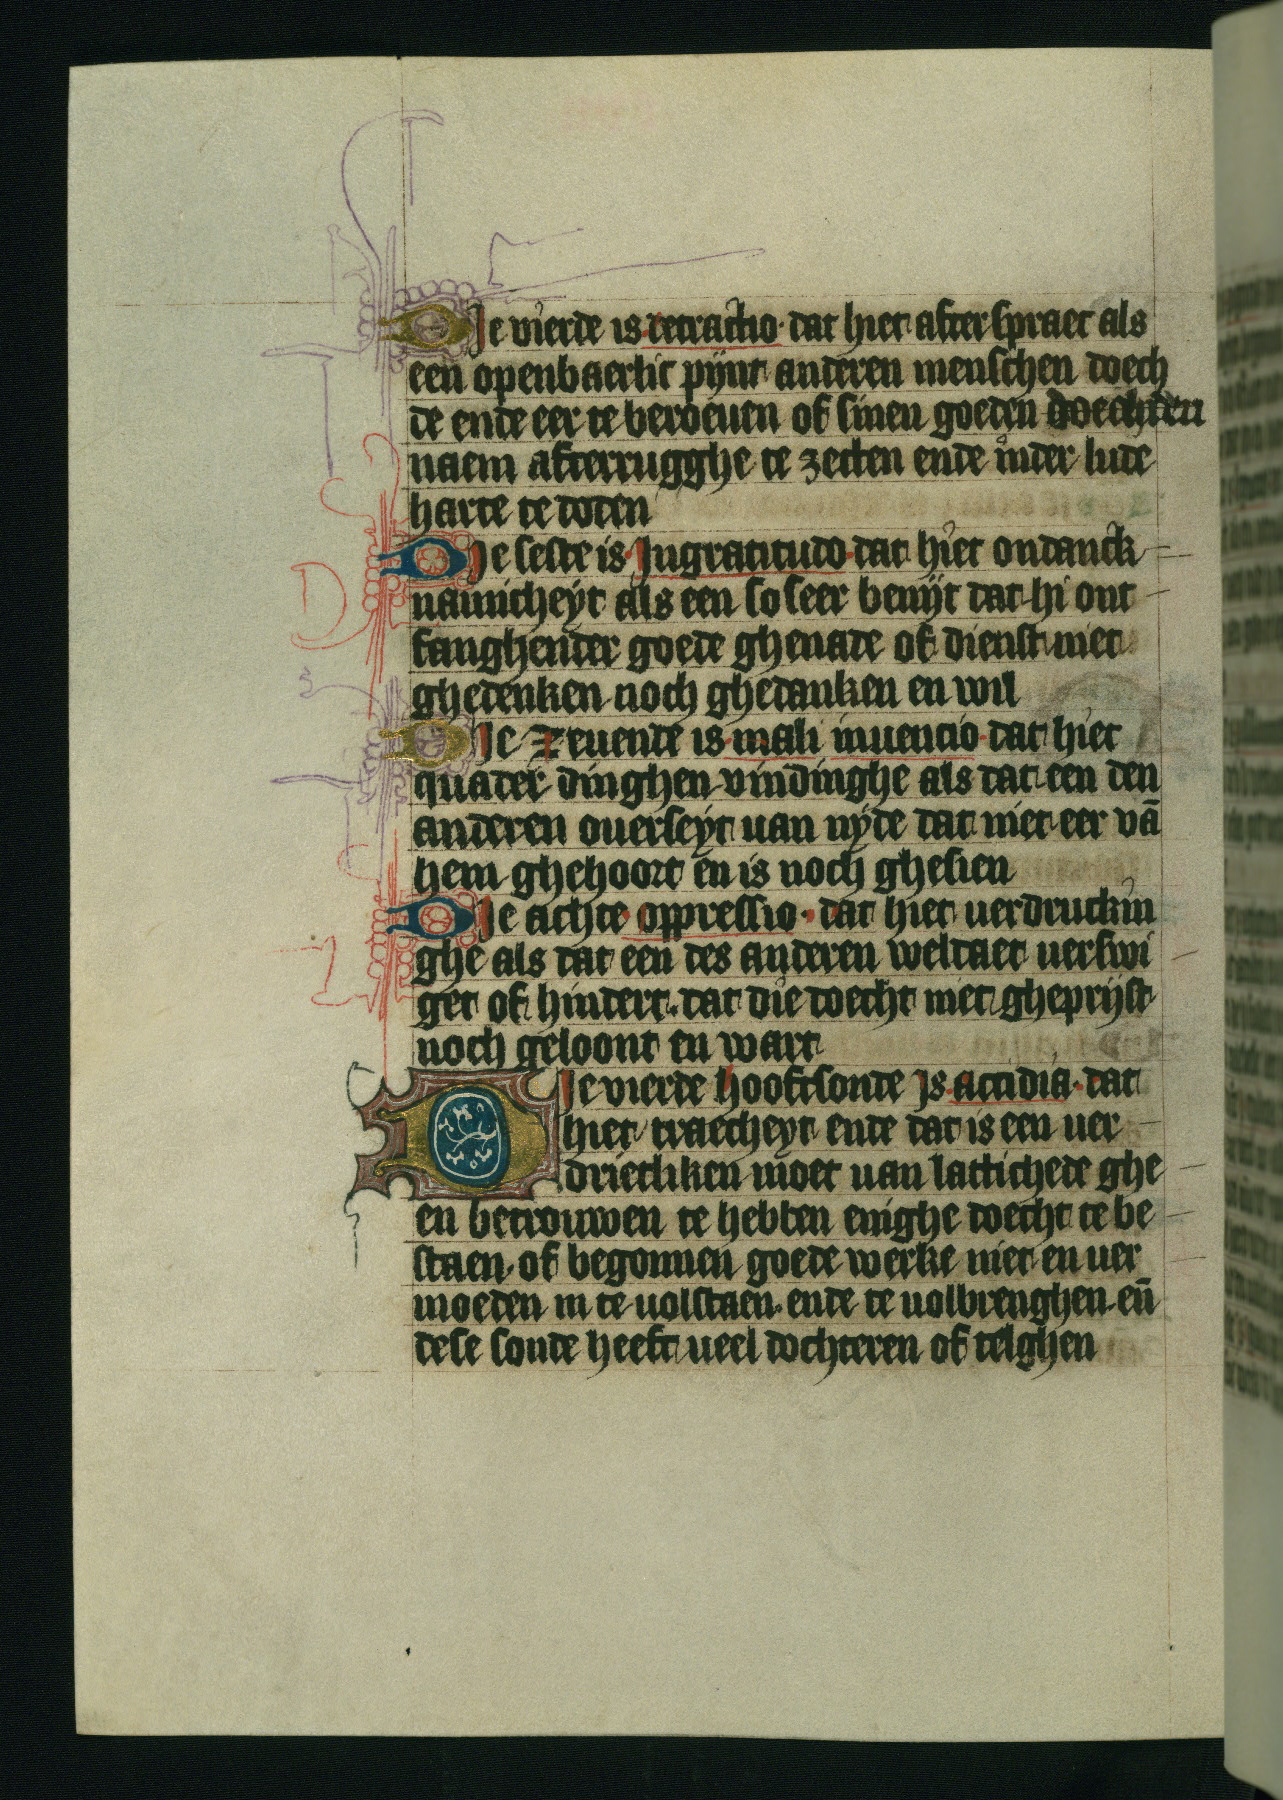 Die vierde is retractio. dat hiet afterspraet als
een openbaerlic pijnt anderen menschen doech
de ende eer te beroeuen of sinen goeden doechden
naem afterrugghe te zetten ende inder lude
harte te doten
Die seste is Ingratitudo. dat hiet ondanck
namicheyt als een so seer benijt dat hi ont
fanghender goede ghenade of dienst niet
ghedenken noch ghedanken en wil
Die zeuende is mali inuencio. dat hiet
quader dinghen vindinghe als dat een den
anderen ouerseyt uan nyde dat niet eer vā
hem ghehoort en is noch ghesien
Die achte oppressio. dat hiet uerdruckin
ghe als dat een des anderen weldaet uerswi
get of hindert. dat die doecht niet gheprijst
noch geloont en wart
Die vierde hooftsonde Is accidia. dat
hiet traecheyt ende dat is een uer
drietliken moet uan lattichede ghe
en betrouwen te hebben enighe doecht te be
staen. of begonnen goede werke niet en uer
moeden in te uolstaen. ende te uolbrenghen. eñ
dese sonde heeft ueel dochteren of telghen